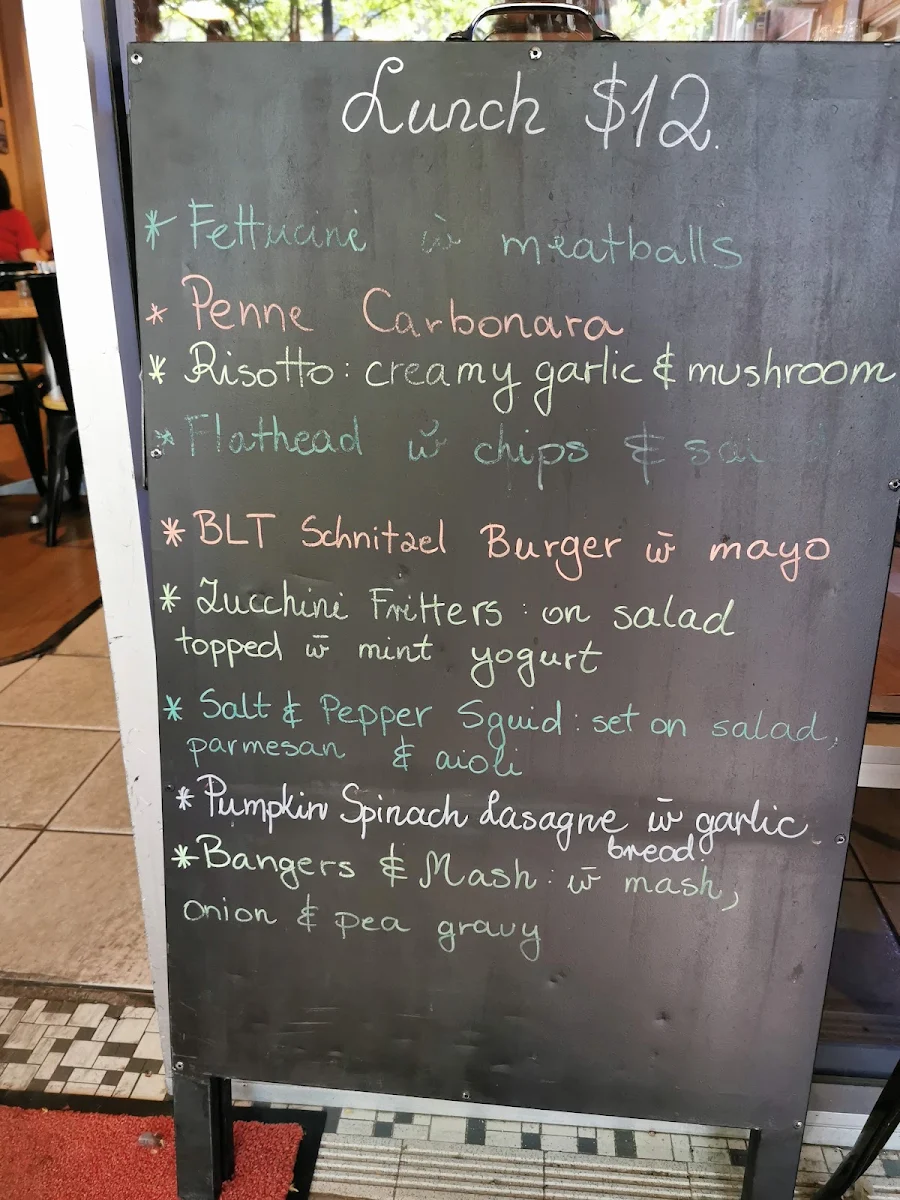 Lunch $12.
* Fettucine w̄ meatballs
* Penne Carbonara
* Risotto: creamy garlic & mushroom
* Flathead w̄ chips &
* BLT Schnitzel Burger w̄ mayo
* Zucchini Fritters: on salad
topped w̄ mint yogurt
* Salt & Pepper Squid: set on salad,
parmesan & aioli
* Pumpkin Spinach Lasagne w̄ garlic
bread.
* Bangers & Mash: w̄ mash,
onion & pea gravy